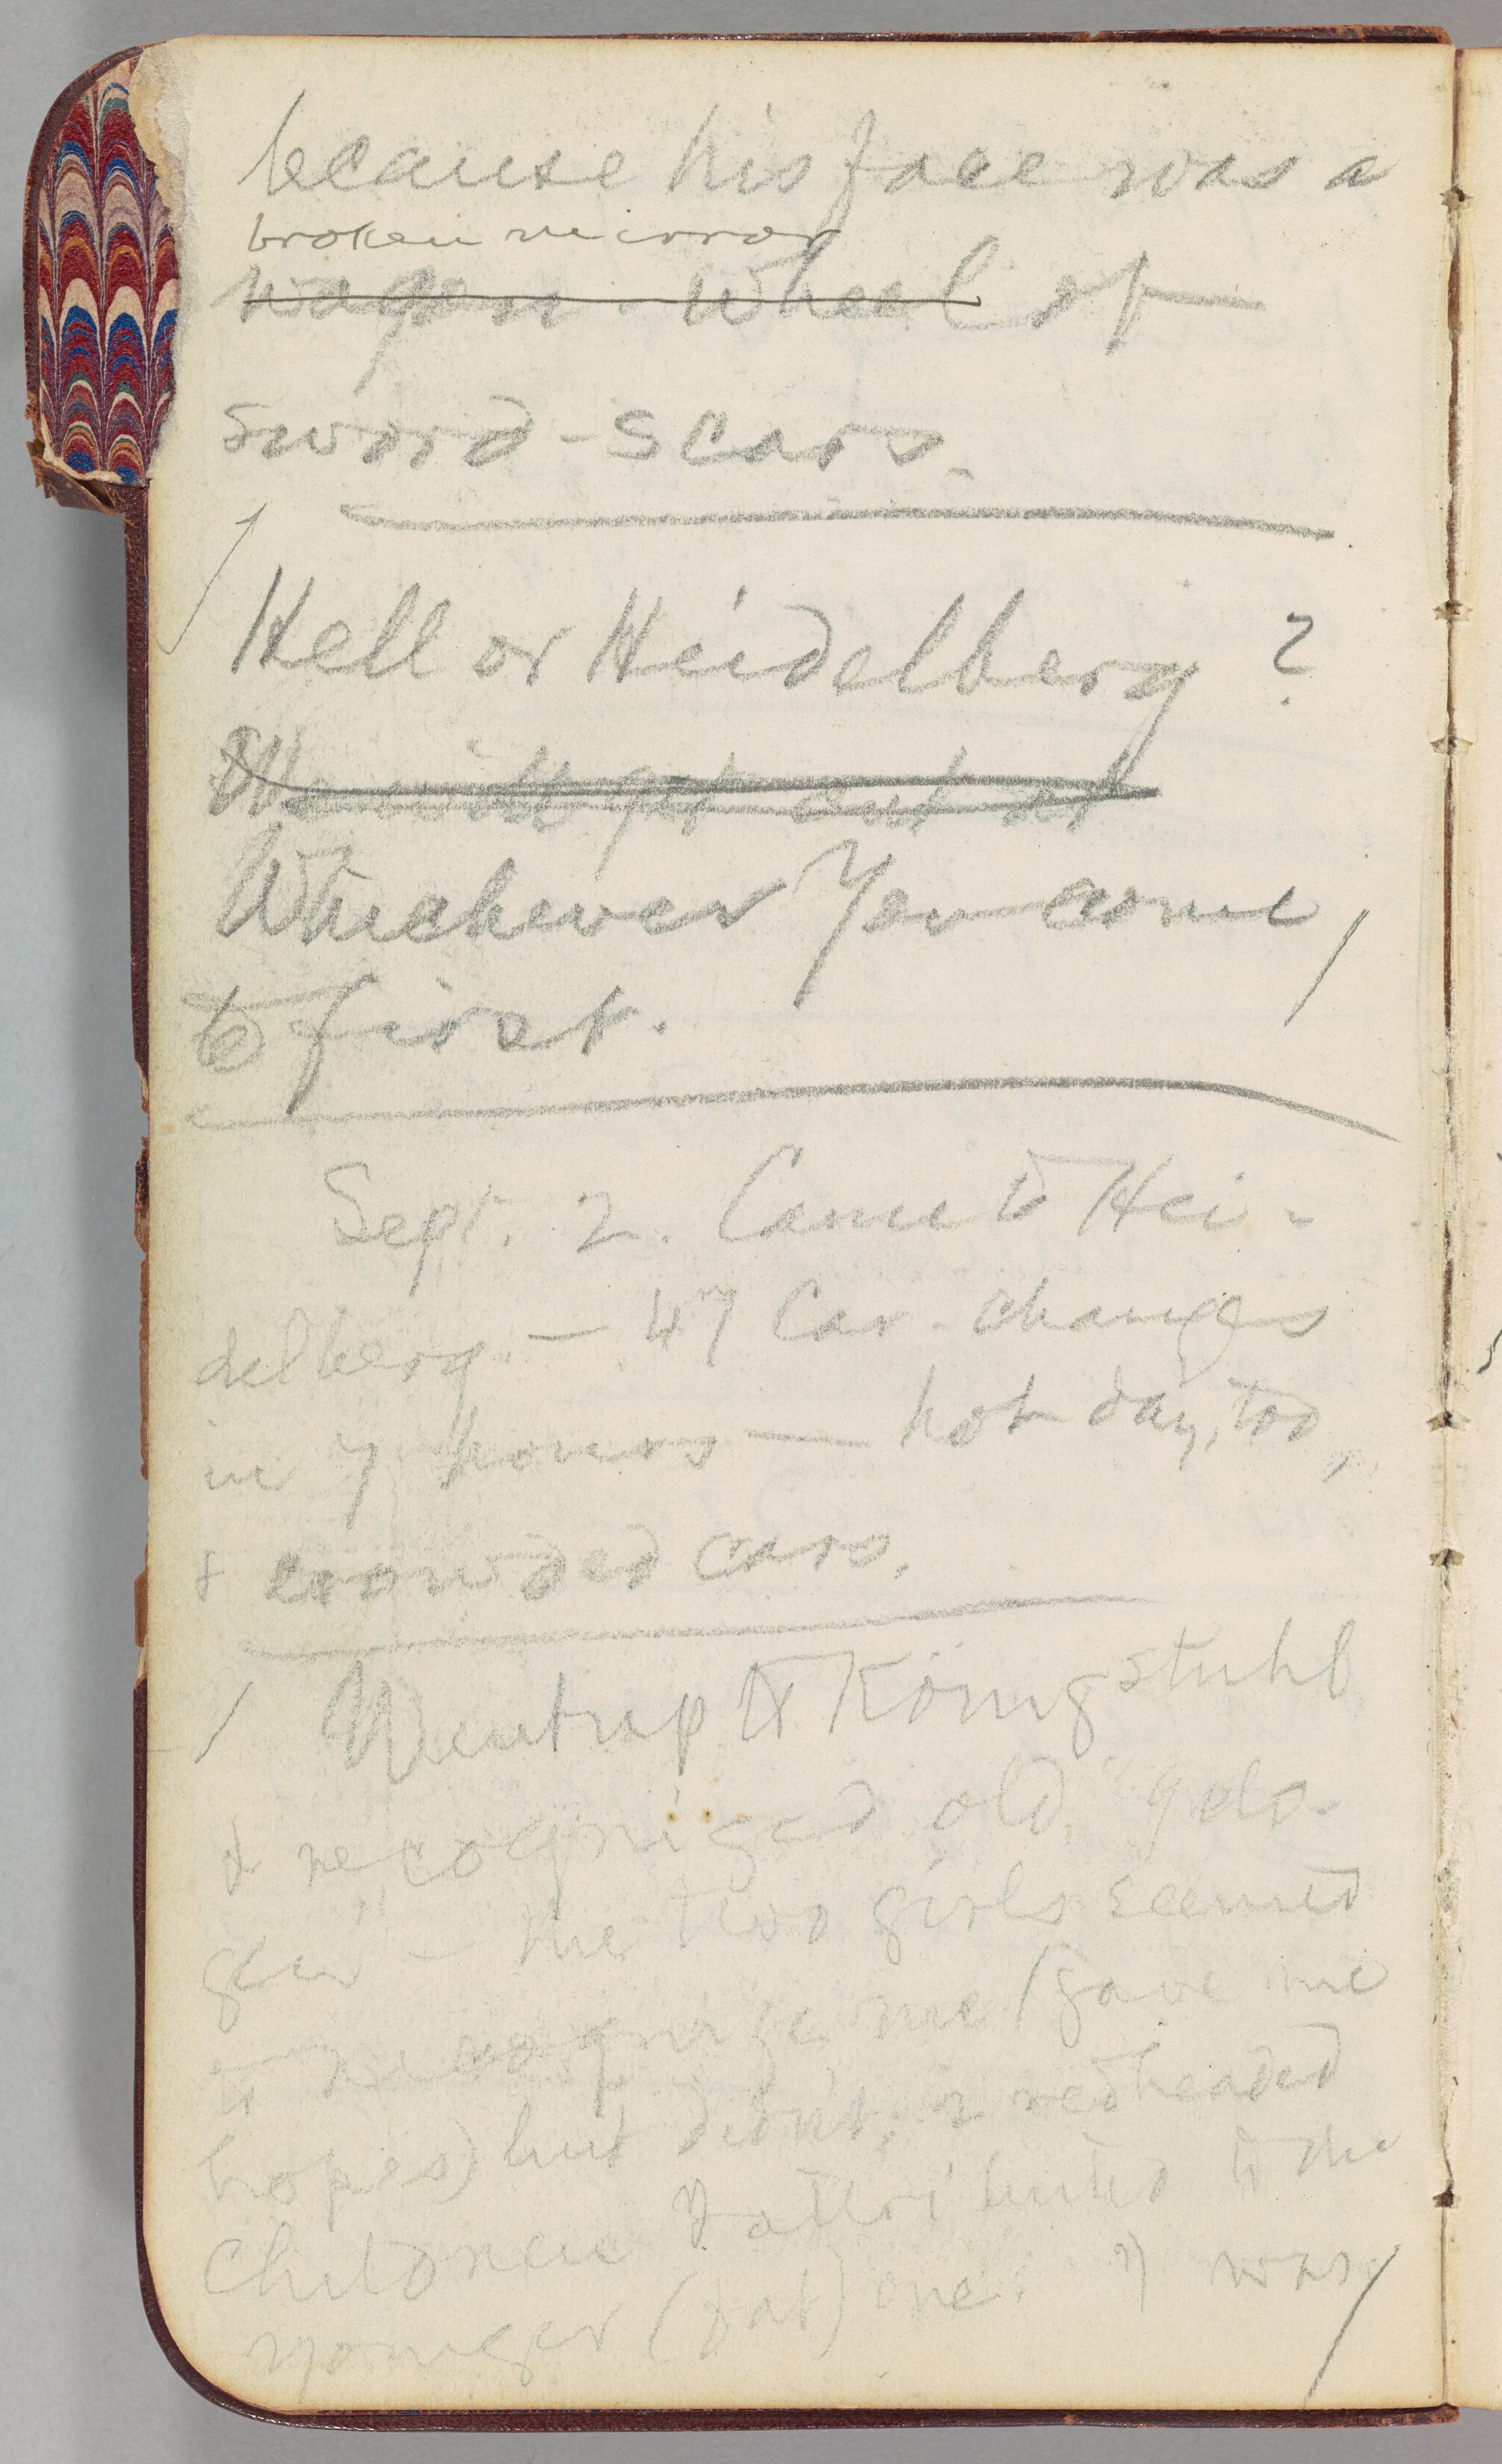 because his face was a
broken mirror
wagon-wheel of
sword-scars.
Hell or Heidelberg ?
We will get out at
Whichever you come
to first.
Sept. 2. Came to Hei-
delberg — 47 Car-changes
in 7 hours — hot day, too,
& crowded cars.
Went up to Königstuhl
& recognized old
— the two girls seemed
to recognize me (gave me
hopes) but didn't; 2 redheaded
children I attributed to the
younger (fat) one. I was